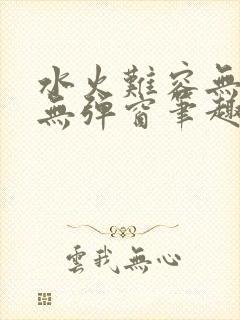 水火難容無
無彈窗筆趣
雲我無心